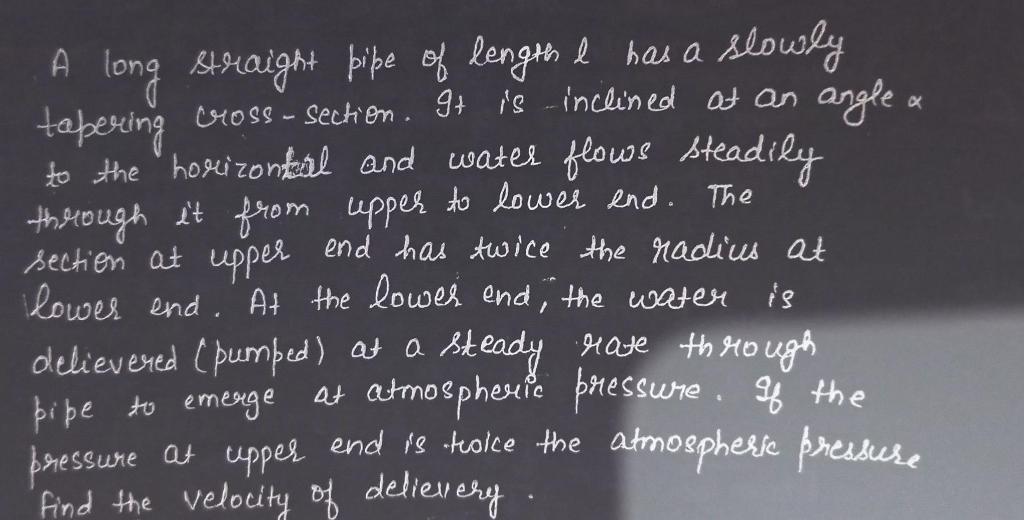 A long straight pipe of length l has a slowly
tapering cross-section. It is inclined at an angle α
to the horizontal and water flows steadily
through it from upper to lower end. The
section at upper end has twice the radius at
lower end. At the lower end, the water is
delievered (pumped) at a steady rate through
pipe to emerge at atmospheric pressure. If the
pressure at upper end is twice the atmospheric pressure
find the velocity of delievery.